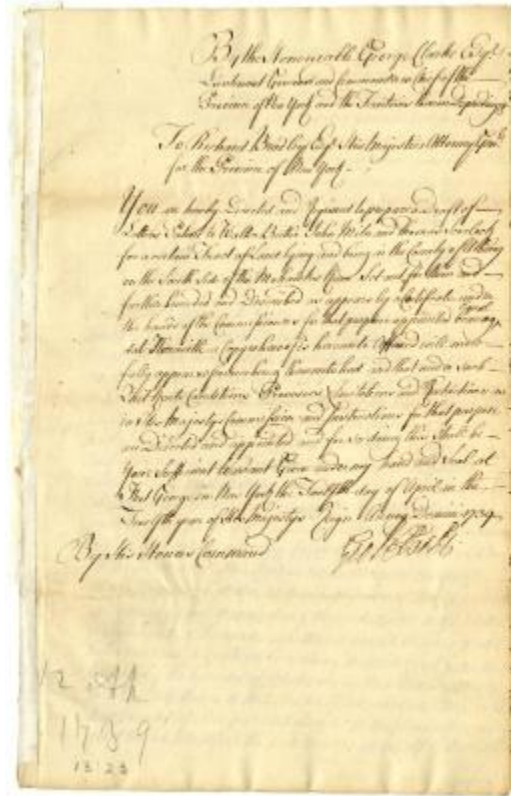 By the Honourable George Clarke Esqr.
Lieutenant Governor and Commander in Chief of the
Province of New York and the Territories thereon Depending
To Richard Bradley Esqr. His Majesties Attorney Genll.
for the Province of New York.
You are hereby Directed and Required to prepare a Draft of
Letters Patent to Walter Butler
for a certain Tract of Land lying and being in the County of Albany
on the South Side of the Mohawks River Set out for them and
further bounded and Described as appears by a Certificate under
the hands of the Commissioners for that purpose appointed bearing
date a Copy whereof is hereunto will more
fully appear
That Quit Provisoes Limitations and Restrictions as
in His Majestys Commission and Instructions for that purpose
are Directed and appointed and for so doing this Shall be
Your Sufficient Warrant Given under my hand and Seal at
Fort George in New York the Twelfth day of April in the
Twelfth year of His Majestys Reign Domini 1739
By His Honours Command
Geo Clarke
12 1739
13 23